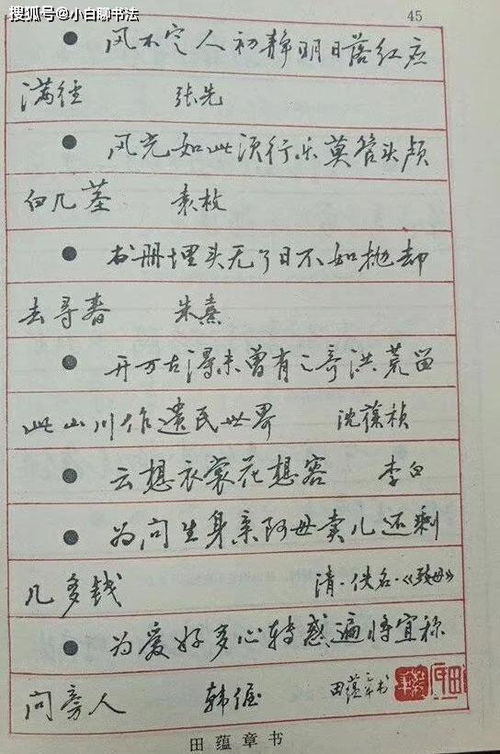 搜狐号@小白聊书法
45
风不定人初静明日落红应
满径 张先
风光如此须行乐莫管头颅
白几茎 袁枚
书册埋头无了日不如抛却
去寻春 朱熹
开万古得未曾有之奇洪荒留
此山川作遗民世界 沈葆桢
云想衣裳花想容 李白
为问生身亲阿母卖儿还剩
几多钱 清·佚名·《鬻母》
为爱好多心转惑遍将宜称
问旁人 韩偓
田蕴章书
田蕴章书